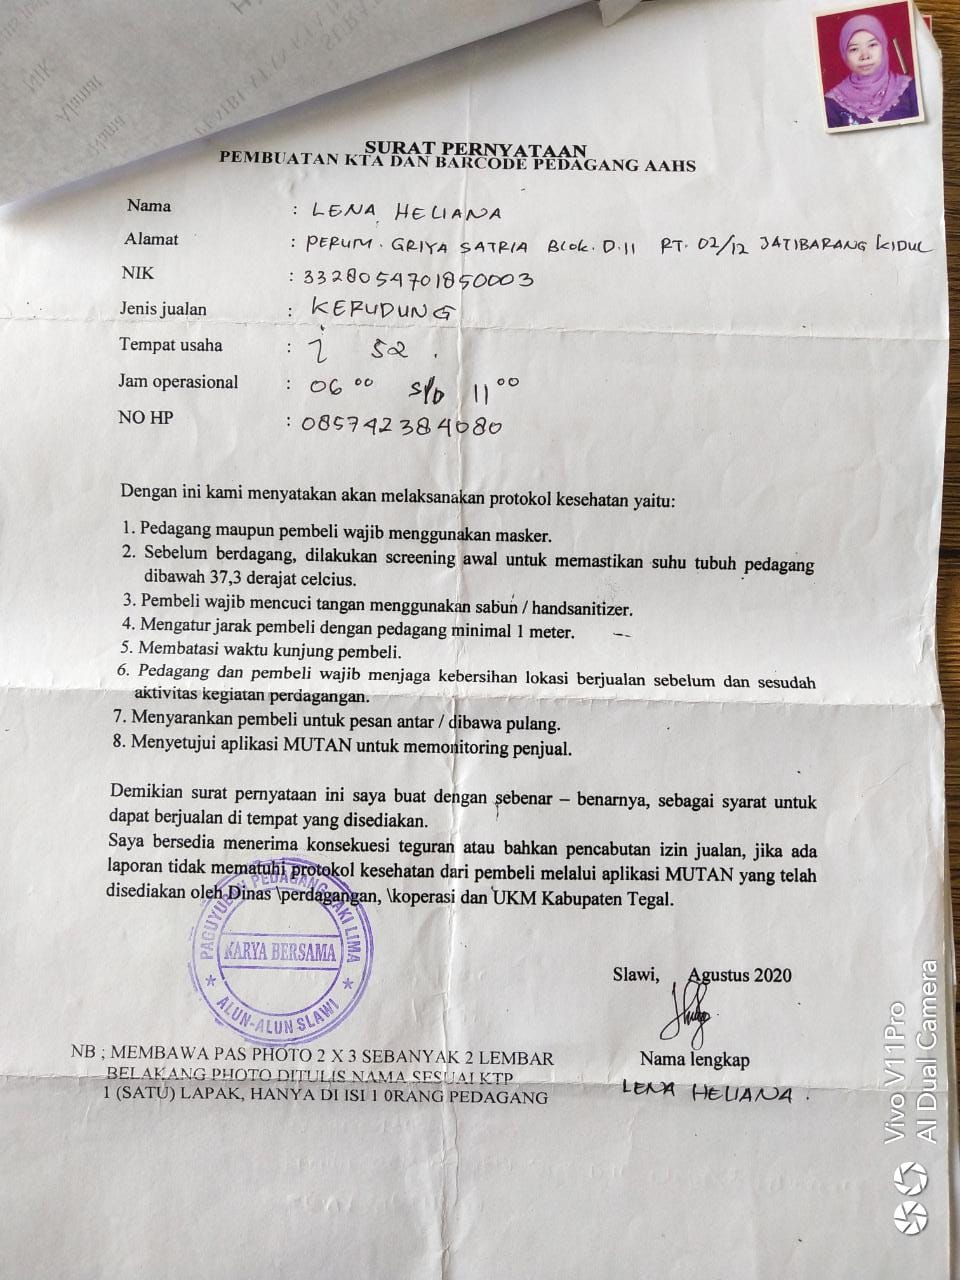 SURAT PERNYATAAN
PEMBUATAN KTA DAN BARCODE PEDAGANG AAHS
Nama : LENA HELIANA
Alamat : PERUM. GRIYA SATRIA Blok. D.11 RT. 02/12 JATIBARANG KIDUL
NIK : 3328054701850003
Jenis jualan : KERUDUNG
Tempat usaha : 52.
Jam operasional : 06 00 s/d 11 00
NO HP : 085742384080
Dengan ini kami menyatakan akan melaksanakan protokol kesehatan yaitu:
1. Pedagang maupun pembeli wajib menggunakan masker.
2. Sebelum berdagang, dilakukan screening awal untuk memastikan suhu tubuh pedagang
dibawah 37,3 derajat celcius.
3. Pembeli wajib mencuci tangan menggunakan sabun / handsanitizer.
4. Mengatur jarak pembeli dengan pedagang minimal 1 meter.
5. Membatasi waktu kunjung pembeli.
6. Pedagang dan pembeli wajib menjaga kebersihan lokasi berjualan sebelum dan sesudah
aktivitas kegiatan perdagangan.
7. Menyarankan pembeli untuk pesan antar / dibawa pulang.
8. Menyetujui aplikasi MUTAN untuk memonitoring penjual.
Demikian surat pernyataan ini saya buat dengan sebenar – benarnya, sebagai syarat untuk
dapat berjualan di tempat yang disediakan.
Saya bersedia menerima konsekuesi teguran atau bahkan pencabutan izin jualan, jika ada
laporan tidak mematuhi protokol kesehatan dari pembeli melalui aplikasi MUTAN yang telah
disediakan oleh Dinas \perdagangan, \koperasi dan UKM Kabupaten Tegal.
PAGUYUBAN PEDAGANG KAKI LIMA
KARYA BERSAMA
ALUN-ALUN SLAWI
Slawi, Agustus 2020
Nama lengkap
LENA HELIANA.
NB ; MEMBAWA PAS PHOTO 2 X 3 SEBANYAK 2 LEMBAR
BELAKANG PHOTO DITULIS NAMA SESUAI KTP
1 (SATU) LAPAK, HANYA DI ISI 1 0RANG PEDAGANG
Vivo V11Pro
AI Dual Camera